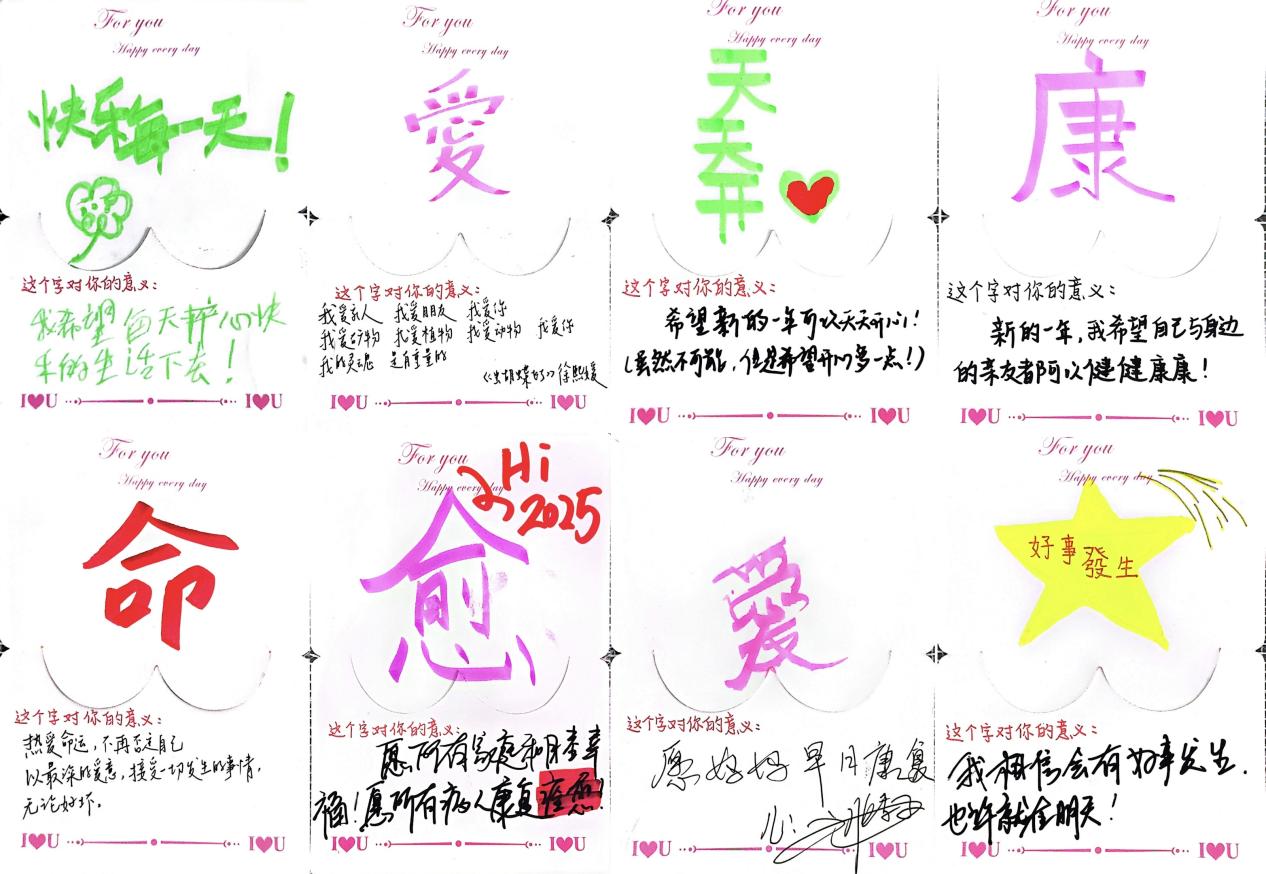 For you
Happy every day
快乐每一天！
这个字对你的意义：
我希望每天开心快
乐的生活下去！
I♥U I♥U
For you
Happy every day
愛
这个字对你的意义：
我爱家人 我爱朋友 我爱你
我爱矿物 我爱植物 我爱动物 我爱你
我的灵魂 是有重量的
徐熙媛
I♥U I♥U
For you
Happy every day
天
天
开
这个字对你的意义：
希望新的一年可以天天开心！
（虽然不可能，但是希望开心多一点！）
I♥U I♥U
For you
Happy every day
康
这个字对你的意义：
新的一年，我希望自己与身边
的亲友都可以健健康康！
I♥U I♥U
For you
Happy every day
命
这个字对你的意义：
热爱命运，不再否定自己
以最深的爱意，接受一切发生的事情，
无论好坏。
I♥U I♥U
For you
Happy every day
Hi
2025
愈
这个字对你的意义：
愿所有家庭和月幸幸
福！愿所有病人康复痊愈！
I♥U I♥U
For you
Happy every day
愛
这个字对你的意义：
愿好好早日康复
I♥U I♥U
For you
Happy every day
好事發生
这个字对你的意义：
我相信会有好事发生.
也许就在明天！
I♥U I♥U